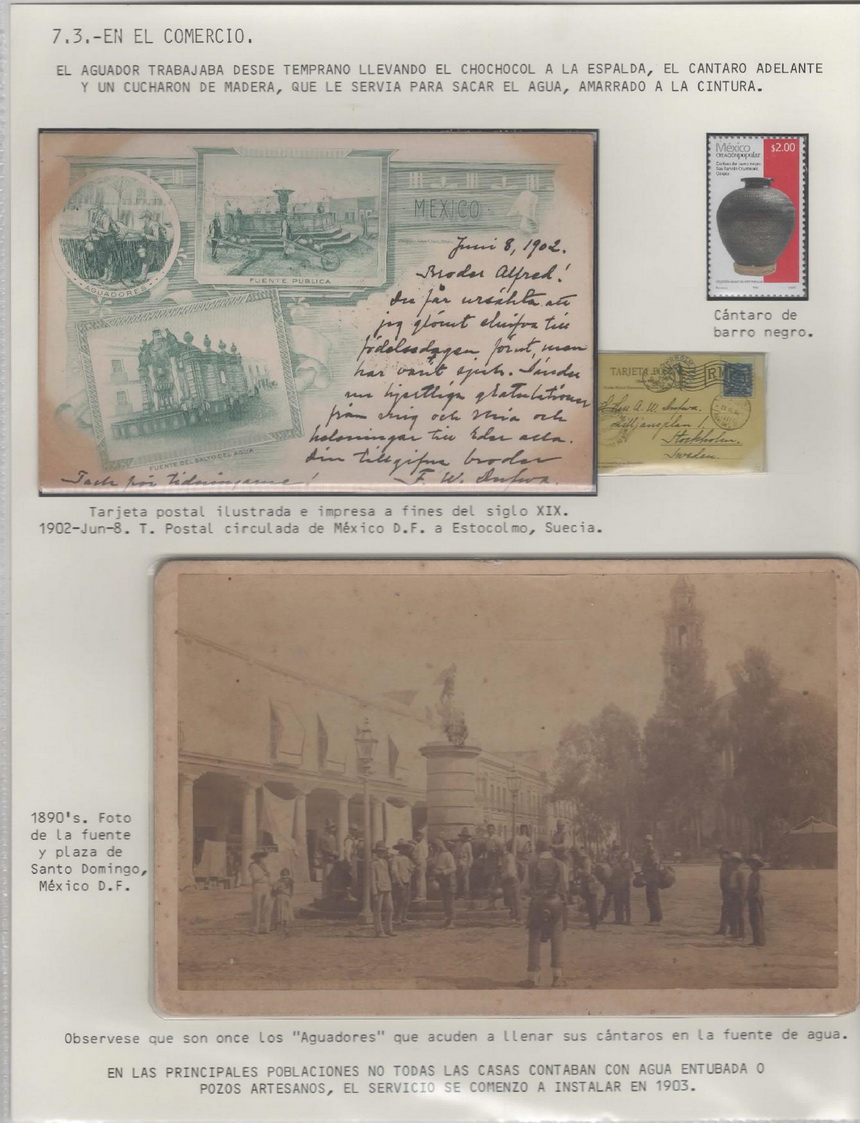 7.3.-EN EL COMERCIO.
EL AGUADOR TRABAJABA DESDE TEMPRANO LLEVANDO EL CHOCHOCOL A LA ESPALDA, EL CANTARO ADELANTE
Y UN CUCHARON DE MADERA, QUE LE SERVIA PARA SACAR EL AGUA, AMARRADO A LA CINTURA.
AGUADORES
FUENTE PUBLICA
MEXICO
FUENTE DEL SALTO DEL AGUA
Juni 8, 1902.
Broder Alfred!
Du får ursäkta att
jag glömt skrifva till
födelsedagen förut, men
har varit
hjertliga gratulationer
från mig och Maria och
helsningar till Eder alla.
Din tillgifne broder
F. W.
Tack för tidningarne!
México
creación popular
$2.00
Cántaro de
barro negro.
TARJETA
A. W.
Stockholm.
Sweden.
Tarjeta postal ilustrada e impresa a fines del siglo XIX.
1902-Jun-8. T. Postal circulada de México D.F. a Estocolmo, Suecia.
1890's. Foto
de la fuente
y plaza de
Santo Domingo,
México D.F.
Observese que son once los "Aguadores" que acuden a llenar sus cántaros en la fuente de agua.
EN LAS PRINCIPALES POBLACIONES NO TODAS LAS CASAS CONTABAN CON AGUA ENTUBADA O
POZOS ARTESANOS, EL SERVICIO SE COMENZO A INSTALAR EN 1903.